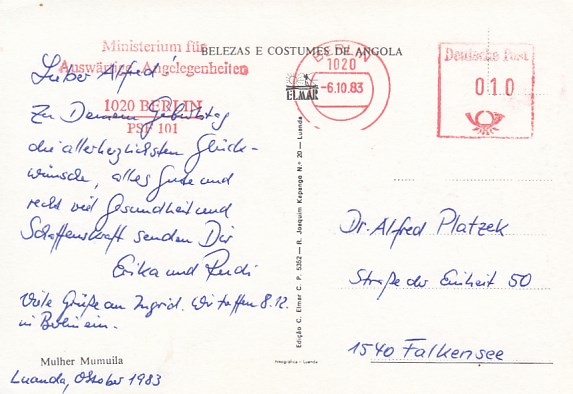 BELEZAS E COSTUMES DE ANGOLA
Ministerium für
Auswärtige Angelegenheiten
1020 BERLIN
PSF 101
BERLIN
1020
-6.10.83
Deutsche Post
010
ELMAR
Lieber Alfred
Zu Deinem Geburtstag
die allerherzlichsten Glück-
wünsche, alles Gute und
recht viel Gesundheit und
Schaffenskraft senden Dir
Erika und Rudi
Viele Grüße an Ingrid. Wir treffen 8.12.
in Berlin ein.
Mulher Mumuila
Luanda, Oktober 1983
Edição C. Elmar C. P. 5352 — R. Joaquim Kapango N.º 20 — Luanda
Dr. Alfred Platzek
Straße der Einheit 50
1540 Falkensee